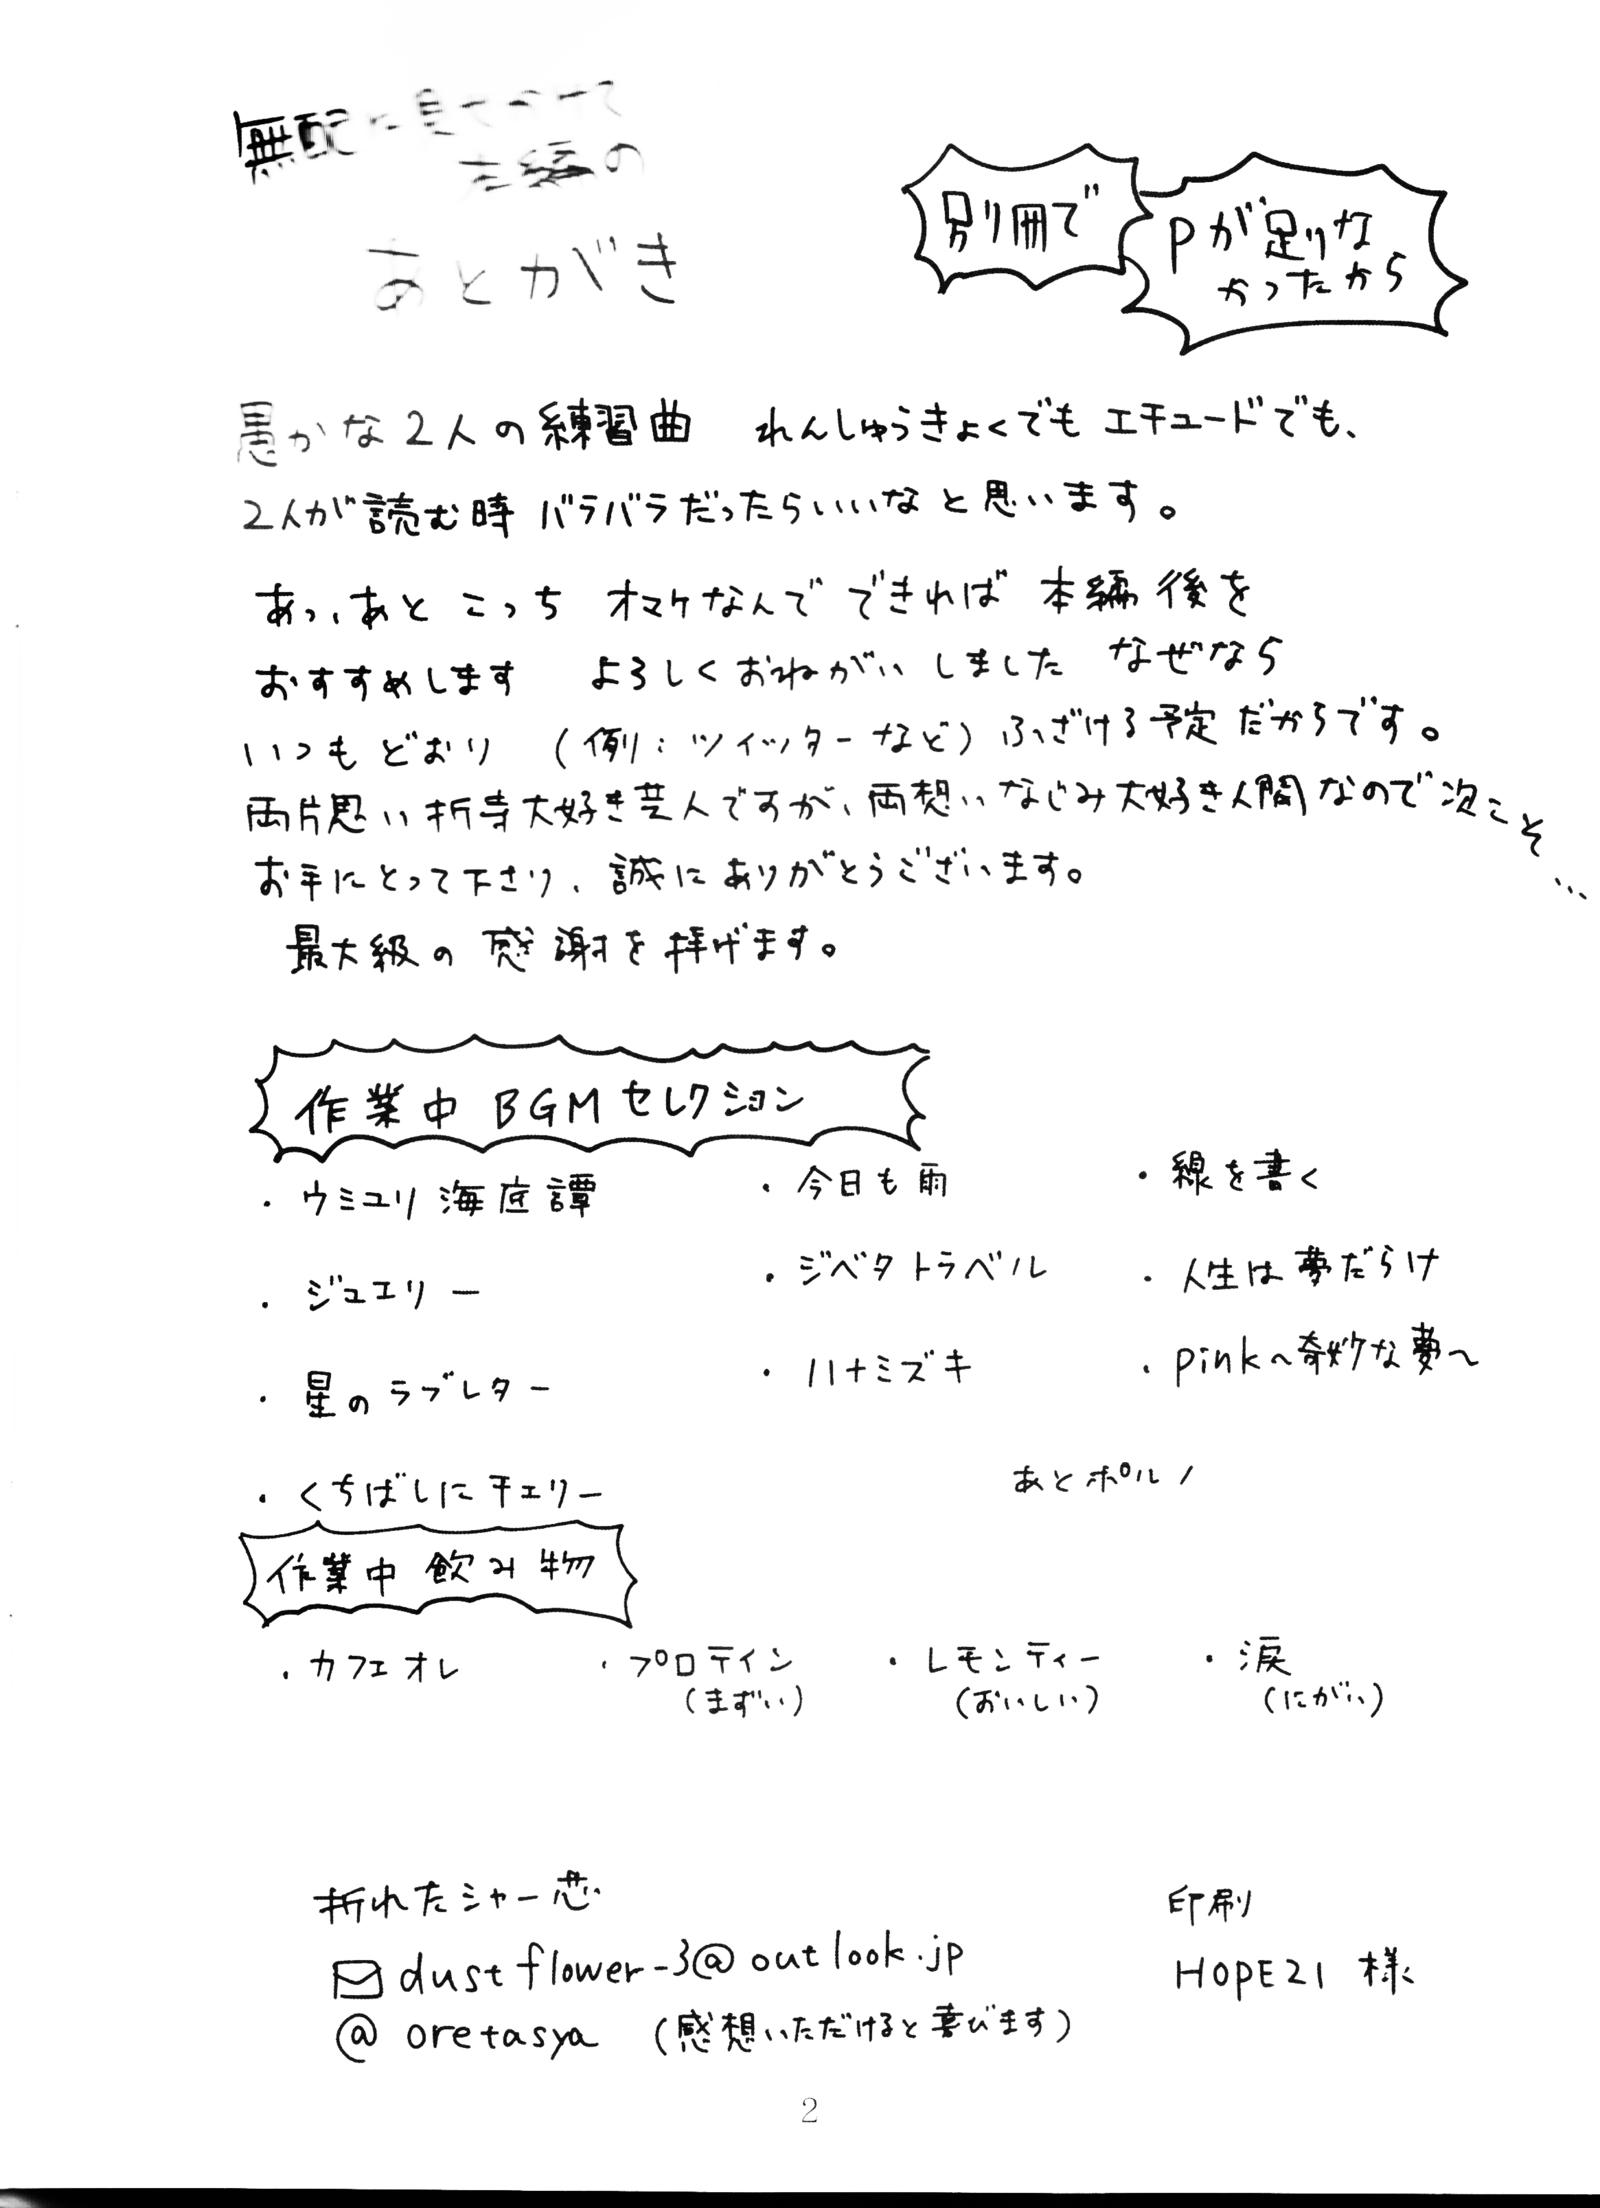 無配に見せかけて
本編の
あとがき
別冊で
Pが足りな
かったから
愚かな2人の練習曲 れんしゅうきょくでも エチュードでも、
2人が読む時 バラバラだったらいいなと思います。
あっ、あと こっち オマケなんで できれば 本編後を
おすすめします よろしくおねがいしました なぜなら
いつもどおり (例:ツイッターなど) ふざける予定だからです。
両片思い折寺大好き芸人ですが、両想いなじみ大好き人間なので次こそ…
お手にとって下さり、誠にありがとうございます。
最大級の感謝を捧げます。
作業中 BGMセレクション
・ウミユリ海底譚
・ジュエリー
・星のラブレター
・くちばしにチェリー
・今日も雨
・ジベタトラベル
・ハナミズキ
・線を書く
・人生は夢だらけ
・pink〜奇妙な夢〜
あとポルノ
作業中 飲み物
・カフェオレ
・プロテイン
(まずい)
・レモンティー
(おいしい)
・涙
(にがい)
折れたシャー芯
dustflower-3@outlook.jp
@oretasya (感想いただけると喜びます)
印刷
HOPE21 様
2